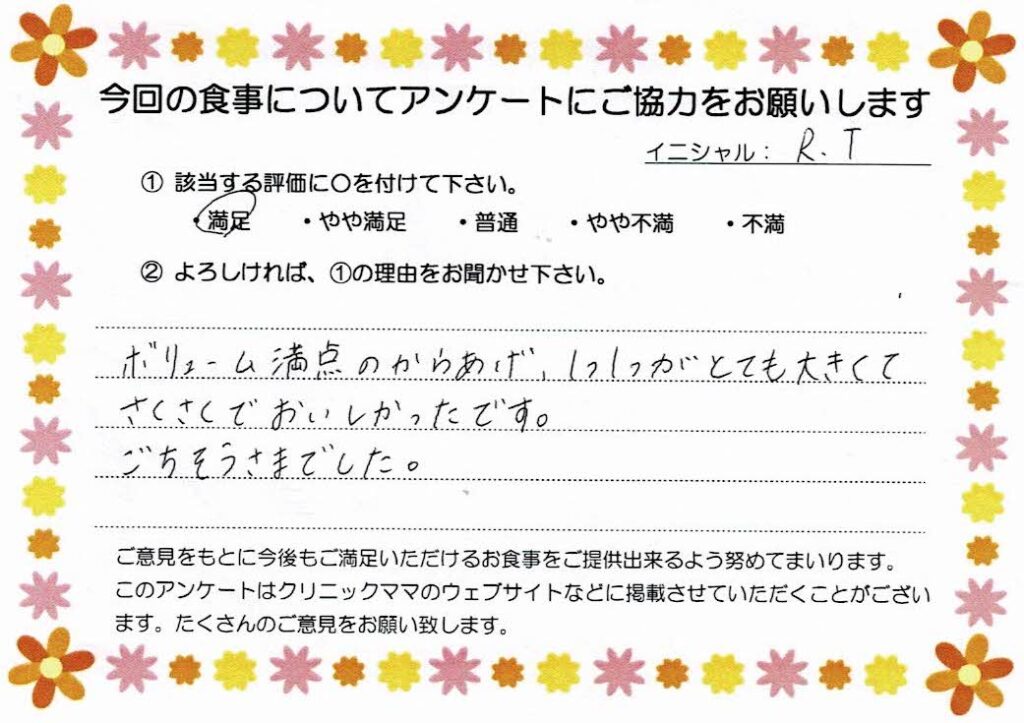 今回の食事についてアンケートにご協力をお願いします
イニシャル： R.T
① 該当する評価に〇を付けて下さい。
・満足 ・やや満足 ・普通 ・やや不満 ・不満
② よろしければ、①の理由をお聞かせ下さい。
ボリューム満点のからあげ、1つ1つがとても大きくて
さくさくでおいしかったです。
ごちそうさまでした。
ご意見をもとに今後もご満足いただけるお食事をご提供出来るよう努めてまいります。
このアンケートはクリニックママのウェブサイトなどに掲載させていただくことがござい
ます。たくさんのご意見をお願い致します。